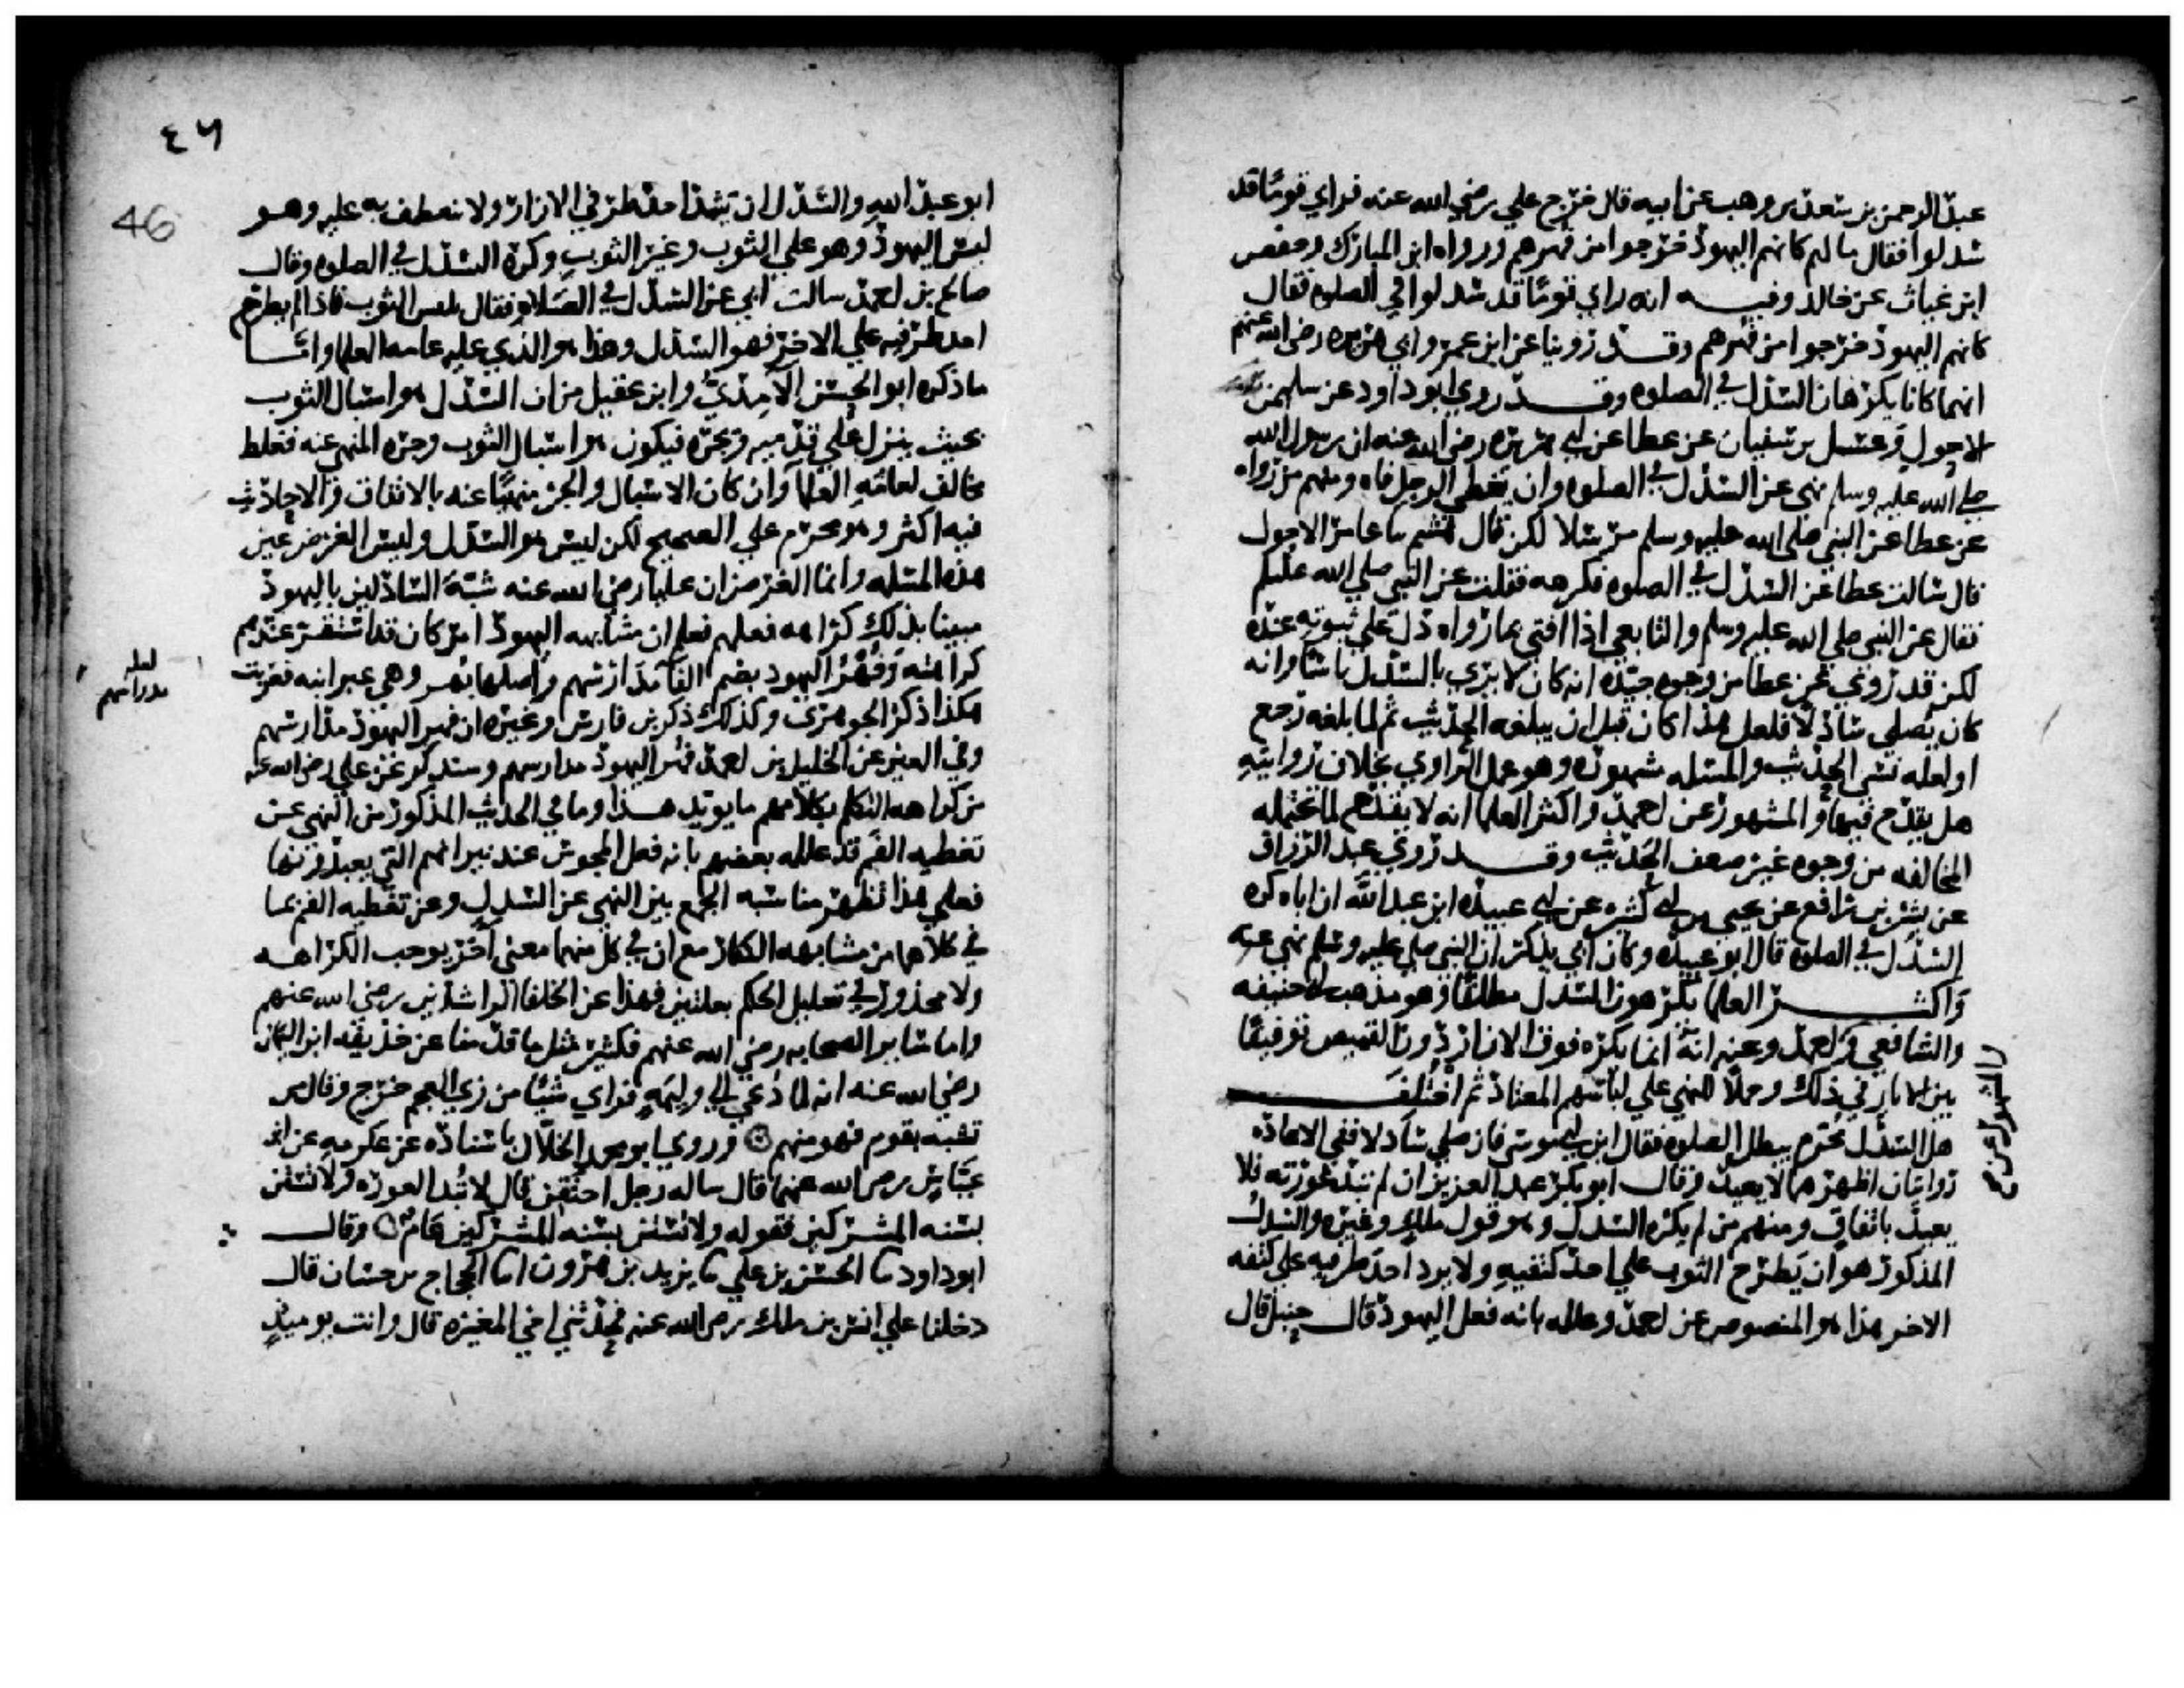 عبد الرحمن بن سعد بن وهب عن ابيه قال خرج علي رضي الله عنه فراي قوما قد
سدلوا فقال ما لهم كانهم اليهود خرجوا من فهرهم ورواه ابن المبارك وحفص
ابن غياث عن خالد وفيه انه راي قوما قد سدلوا في الصلوه فقال
كانهم اليهود خرجوا من فهرهم وقد روينا عن ابن عمر وابي هريره رضي الله عنهم
انهما كانا يكرهان السدل في الصلوه وقد روي ابو داود عن سليمن
الاحول وعسل بن سفيان عن عطا عن ابي هريره رضي الله عنه ان رسول الله
صلي الله عليه وسلم نهى عن السدل في الصلوه وان يغطي الرجل فاه ومنهم من رواه
عن عطا عن النبي صلى الله عليه وسلم مرسلا لكن قال هشيم ثنا عامر الاحول
قال سالت عطا عن السدل في الصلوه فكرهه فقلت عن النبي صلي الله عليه وسلم
فقال عن النبي صلي الله عليه وسلم والتابعي اذا افتي بما رواه دل علي ثبوته عنده
لكن قد روي عن عطا من وجوه جيده انه كان لا يري بالسدل باسا وانه
كان يصلي سادلا فلعل هذا كان قبل ان يبلغه الحديث ثم لما بلغه رجع
او لعله نسي الحديث والمسئله مشهوره وهو عمل الراوي بخلاف روايته
هل يقدح فيها والمشهور عن احمد واكثر العلما انه لا يقدح لما تحتمله
المخالفه من وجوه غير ضعف الحديث وقد روي عبد الرزاق
عن بشر بن رافع عن يحيي بن ابي كثير عن ابي عبيده ابن عبد الله ان اباه كره
السدل في الصلوه قال ابو عبيده وكان ابي يذكر ان النبي صلي عليه وسلم نهي عنه
واكثر العلما يكرهون السدل مطلقا وهو مذهب ابي حنيفه
والشافعي واحمد وعنه انه انما يكره فوق الازار دون القميص توفيقا
بين الاثار في ذلك وحملا للنهي علي لباسهم المعتاد ثم اختلف
هل السدل محرم يبطل الصلوه فقال ابن ابي موسي فان صلي سادلا ففي الاعاده
روايتان اظهرهما لا يعيد وقال ابو بكر عبد العزيز ان لم تبد عورته فلا
يعيد باتفاق ومنهم من لم يكره السدل وهو قول ملك وغيره والسدل
المذكور هو ان يطرح الثوب علي احد كتفيه ولا يرد احد طرفيه علي كتفه
الاخر هذا هو المنصوص عن احمد وعلله بانه فعل اليهود قال حنبل قال
٤٦
46
ابو عبد الله والسدل ان يسدل احد طرفي الازار ولا ينعطف به عليه وهو
لبس اليهود وهو علي الثوب وغير الثوب وكره السدل في الصلوه وقال
صالح بن احمد سالت ابي عن السدل في الصلاه فقال يلبس الثوب فاذا لم يطرح
احد طرفيه علي الاخر فهو السدل وهذا هو الذي عليه عامه العلما واما
ما ذكره ابو الحسن الآمدي وابن عقيل من ان السدل هو اسبال الثوب
بحيث ينزل علي قدميه ويجره فيكون هو اسبال الثوب وجره المنهي عنه فغلط
مخالف لعامه العلما وان كان الاسبال والجر منهيا عنه بالاتفاق والاحاديث
فيه اكثر وهو محرم علي الصحيح لكن ليس هو السدل وليس الغرض عين
هذه المسئله وانما الغرض ان عليا رضي الله عنه شبه السادلين باليهود
مبينا بذلك كراهه فعلهم فعلم ان مشابهه اليهود امر كان قد استقر عندهم
كراهته وفهر اليهود بضم الفا مدارسهم واصلها بهر وهي عبرانيه فعربت
هكذا ذكر الجوهري وكذلك ذكر بن فارس وغيره ان فهر اليهود مدارسهم
لعله مدراسهم
وفي العين عن الخليل بن احمد فهر اليهود مدارسهم وسنذكر عن علي رضي الله عنه
من كراهه التكلم بكلامهم ما يويد هذا وما في الحديث المذكور من النهي عن
تغطيه الفم قد علله بعضهم بانه فعل المجوس عند نيرانهم التي يعبدونها
فعلي هذا تظهر مناسبه الجمع بين النهي عن السدل وعن تغطيه الفم بما
في كلاهما من مشابهه الكفار مع ان في كل منهما معنى آخر يوجب الكراهه
ولا محذور في تعليل الحكم بعلتين فهذا عن الخلفا الراشدين رضي الله عنهم
واما ساير الصحابه رضي الله عنهم فكثير مثل ما قدمنا عن حذيفه ابن اليمان
رضي الله عنه انه لما دعي الي وليمه فراي شيئا من زي العجم خرج وقال من
تشبه بقوم فهو منهم وروي ابو محمد الخلال باسناده عن عكرمه عن ابن
عباس رضي الله عنهما قال ساله رجل احتقن قال لا تبد العوره ولا تستن
بسنه المشركين فقوله ولا تستن بسنه المشركين عام وقال
ابو داود ثنا الحسن بن علي ثنا يزيد بن هرون انا الحجاج بن حسان قال
دخلنا علي انس بن ملك رضي الله عنه فحدثتني اختي المغيره قال وانت يوميذ